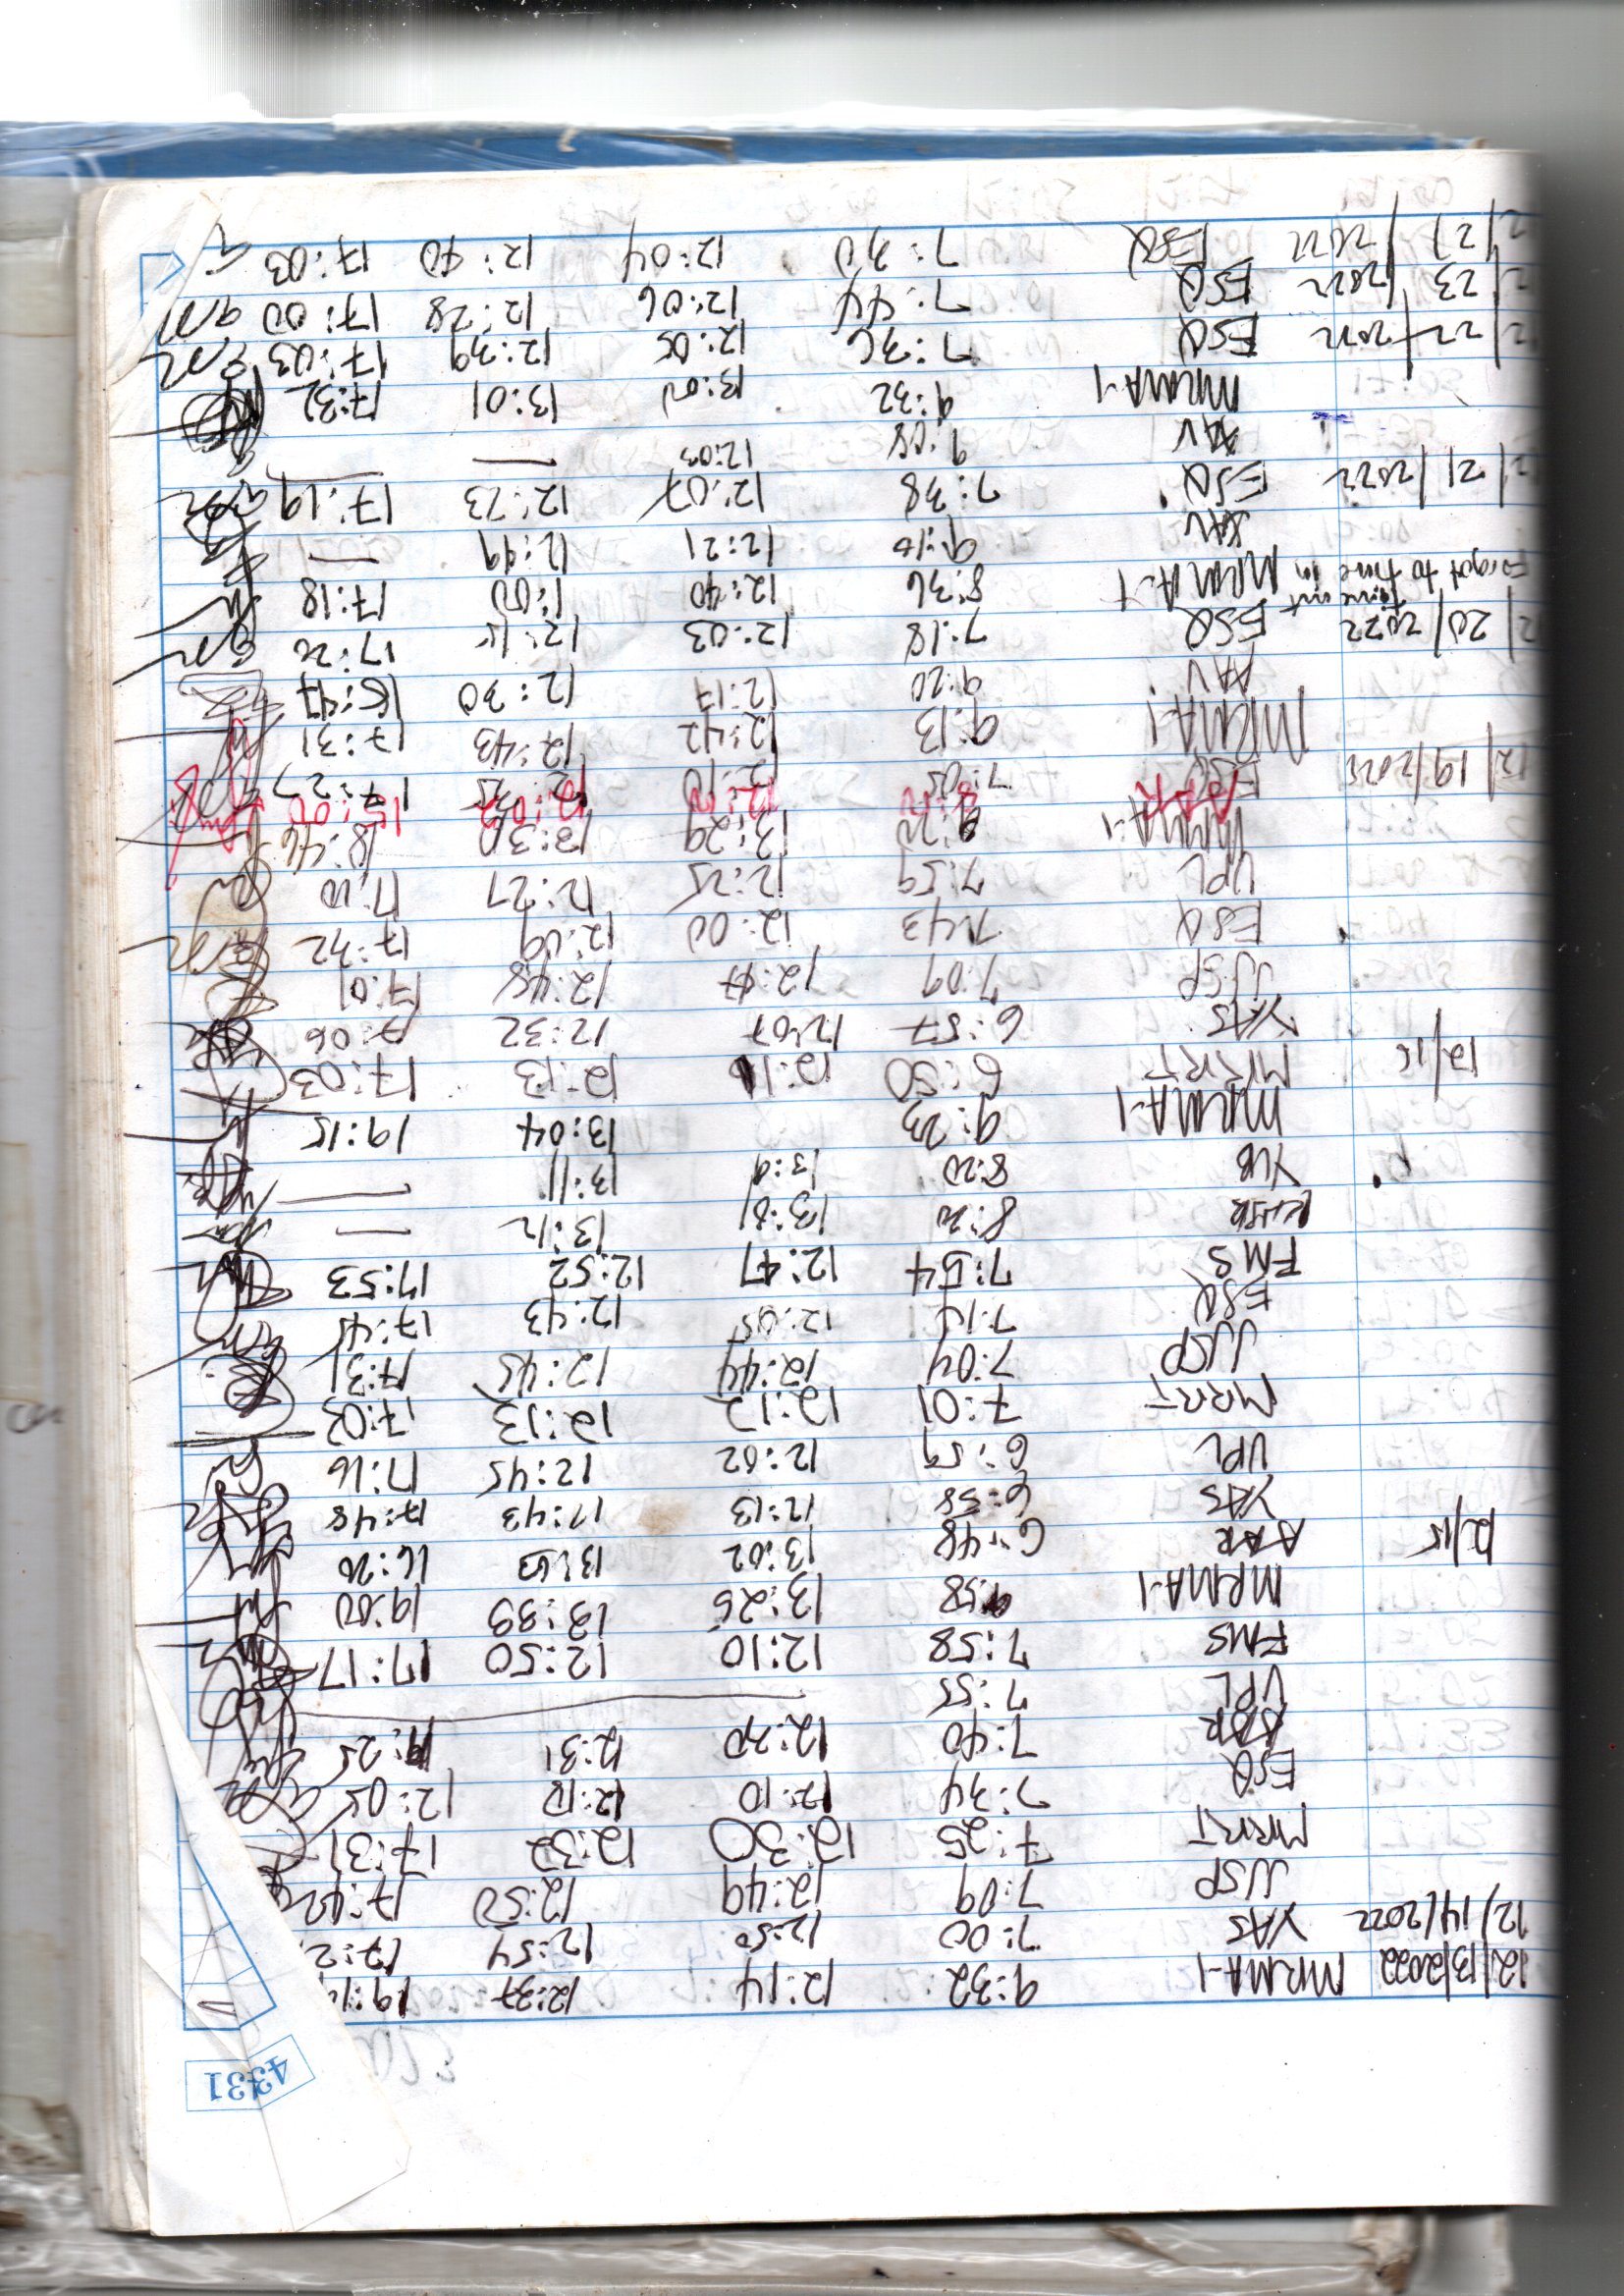 12/13/2022 MRMA-1 9:32 12:14 12:37
12/14/2022 YAS 7:00 12:50 12:54
JJSP 7:09 12:49 12:50
MRRT 7:25 12:30 12:32 17:31
ESQ 7:34 12:10 12:12 12:05
AAR 7:40 12:20 12:31
VPL 7:55
FMS 7:58 12:10 12:50 17:17
MRMA-1 9:58 13:26 13:33 19:00
12/15 AAR 6:48 13:02 13:03 16:20
YAS 6:58 12:13 12:43 17:48
VPL 6:59 12:02 12:45 17:16
MRRT 7:01 12:12 12:13 17:02
JJSP 7:04 12:44 12:45 17:31
ESQ 7:15 12:05 12:43 17:45
FMS 7:54 12:47 12:52 17:53
8:20 13:01 13:12 —
YUB 8:20 13:11 —
MRMA-1 9:23 13:04 19:15
12/16 MRRT 6:50 12:13 17:03
YAS 6:57 12:07 12:32 17:06
JJSP 7:09 12:47 12:48 17:01
ESQ 7:43 12:00 12:09 17:32
VPL 7:59 12:25 12:27 17:10
MRMA-1 13:29 13:30 18:46
AAR 15:00
12/19/2022 ESQ 7:05 17:27
MRMA-1 9:13 12:42 12:43 17:31
AAV 9:20 12:17 12:30 16:47
12/20/2022 ESQ 7:18 12:03 12:15 17:26
Forgot to time in time out MRMA-1 8:36 12:40 1:00 17:18
AAV 9:10 12:21 12:49 —
12/21/2022 ESQ 7:38 12:07 17:19
AAV 9:08 12:03 — —
MRMA-1 9:32 13:00 13:01 17:32
12/22/2022 ESQ 7:36 12:05 12:39 17:03
12/23/2022 ESQ 7:44 12:06 12:28 17:00
12/27/2022 ESQ 7:30 12:04 12:40 17:03